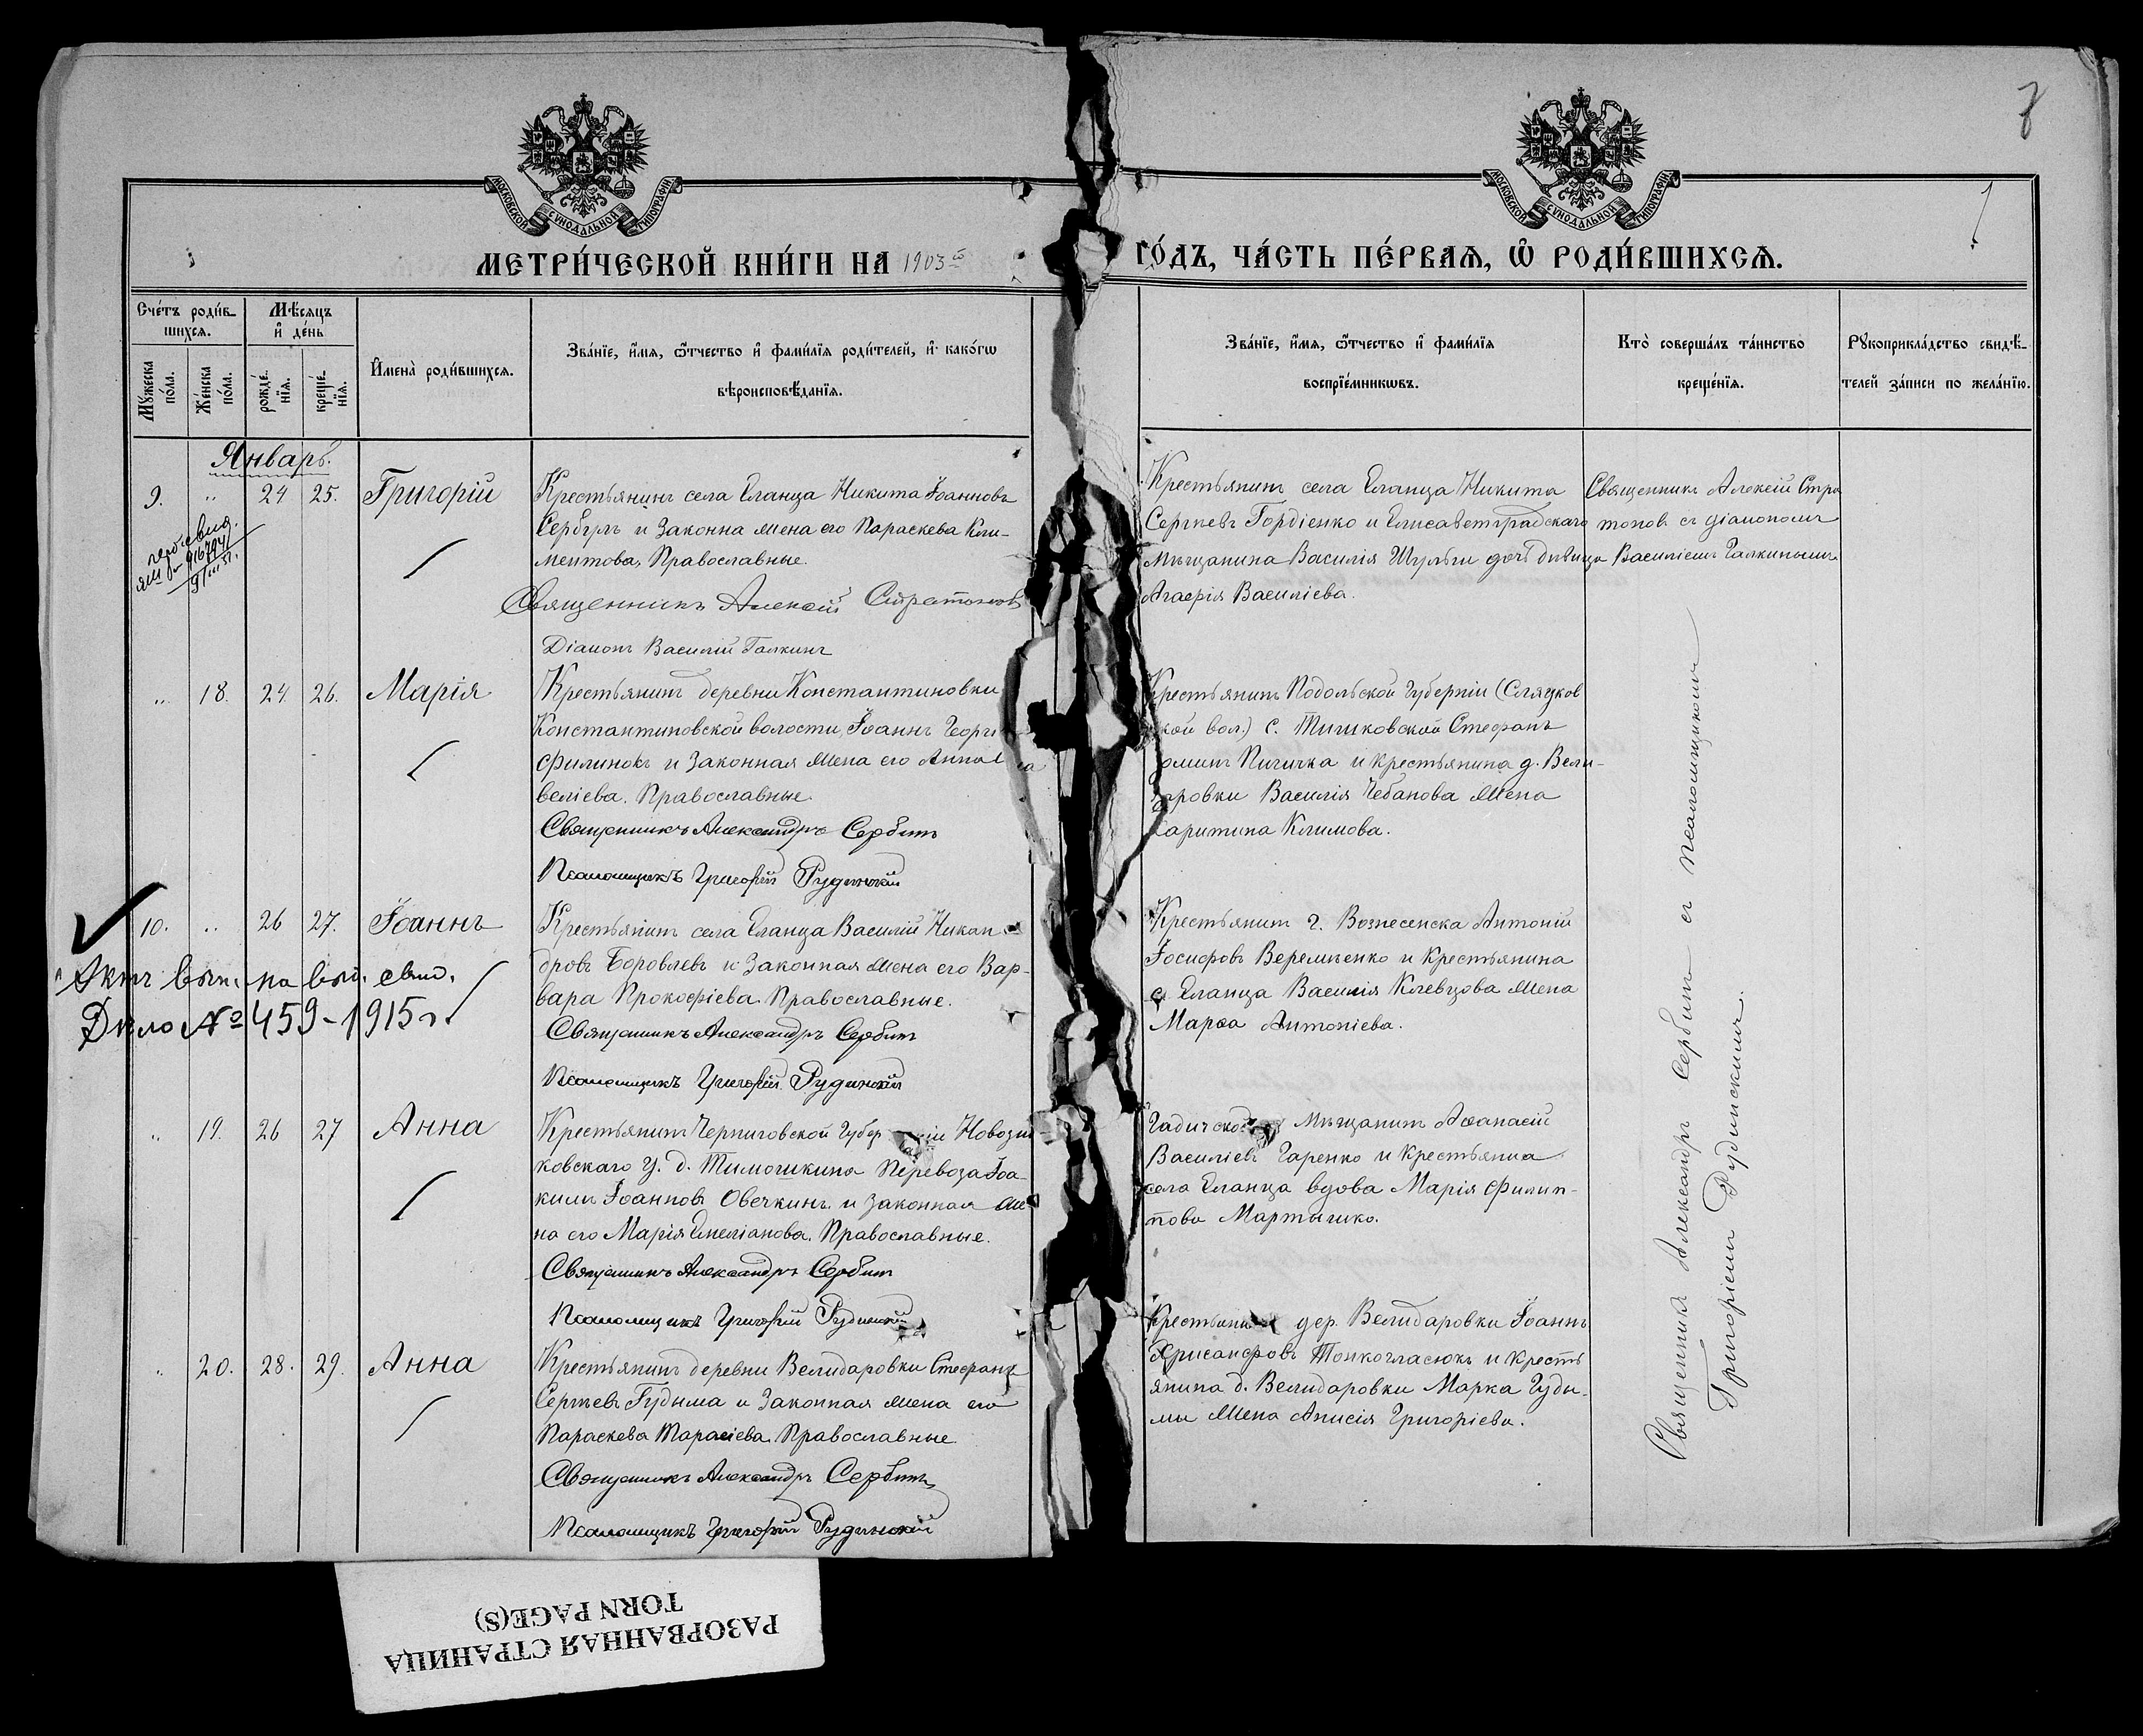 8
МОСКОВСКОЙ СѴНОДАЛЬНОЙ ТИПОГРАФІИ
МОСКОВСКОЙ СѴНОДАЛЬНОЙ ТИПОГРАФІИ
МЕТРИ́ЧЕСКОЙ КНИ́ГИ НА 1903 й ГО́ДЪ, ЧА́СТЬ ПЕ́РВАѦ, Ѡ҆ РОДИ́ВШИХСѦ.
Сче́тъ роди́в-
шихсѧ.
Мѣ́сѧцъ
и҆ де́нь
Мꙋ́жеска
по́ла.
Же́нска
по́ла.
рожде́-
нїѧ.
креще́-
нїѧ.
И҆мена̀ роди́вшихсѧ.
Зва́нїе, и҆́мѧ, ѻ҆́тчество и҆ фами́лїѧ роди́телей, и҆ како́гѡ
вѣроисповѣ́данїѧ.
Зва́нїе, и҆́мѧ, ѻ҆́тчество и҆ фами́лїѧ
воспрїе́мникѡвъ.
Кто̀ соверша́лъ та́инство
креще́нїѧ.
Рꙋкоприкла́дство свидѣ́-
телей за́писи по жела́нїю.
Январь.
9. „ 24 25. Григорій
Крестьянинъ села Еланца Никита Іоанновъ
Сербулъ и Законна жена его Параскева Кли-
ментова, Православные.
Священникъ Алексій Стратоновъ
Діаконъ Василій Галкинъ
Крестьянинъ села Еланца Никита
Сергѣевъ Гордіенко и Елисаветградскаго
мѣщанина Василія Шульги дочь дѣвица
Агафія Василіева.
Священникъ Алексій Стра
тоновъ съ діакономъ
Василіемъ Галкинымъ
„ 18. 24 26. Марія
Крестьянинъ деревни Константиновки
Константиновской волости, Іоаннъ Георгі
Филиновъ и Законная жена его Анна
веліева. Православные.
Священникъ Александръ Сербинъ
Псаломщикъ Григорій Рудинскій
Крестьянинъ Подольской губерніи
кой вол.) с. Тишковской Стефанъ
Пичичка и крестьянина д. Вели-
ровки Василія Чебанова жена
Харитина Климова.
10. „ 26 27. Іоаннъ
Актъ вып. на вып. свид.
Дѣло № 459-1915 г.
Крестьянинъ села Еланца Василій Никан
дровъ Боровлевъ и Законная жена его Вар-
вара Прокофіева. Православные.
Священникъ Александръ Сербинъ
Псаломщикъ Григорій Рудинскій
Крестьянинъ г. Вознесенска Антоній
Іосифовъ Веремѣенко и крестьянина
с. Еланца Василія Клевцова жена
Марѳа Антоніева.
„ 19. 26 27 Анна
Крестьянинъ Черниговской Губер ніи Новозы
ковскаго у. д. Тимошкина Перевоза Іоа-
кимъ Іоанновъ Овечкинъ и законная же
на его Марія Емеліанова. Православные.
Священникъ Александръ Сербинъ
Псаломщикъ Григорій Рудинскій
Гадичско мѣщанинъ Аѳанасій
Василіевъ Гаренко и крестьянка
села Еланца вдова Марія Филип-
пова Мартышко.
„ 20. 28. 29. Анна
Крестьянинъ деревни Велидаровки Стефанъ
Сергѣевъ Гудыма и Законная жена его
Параскева Тарасіева. Православные
Священникъ Александръ Сербинъ
Псаломщикъ Григорій Рудинскій
Крестьянинъ дер. Велидаровки Іоаннъ
Хрисанфовъ Тонкогласюкъ и кресть
янина д. Велидаровки Марка Гуды-
мы жена Анисія Григоріева.
Священникъ Александръ Сербинъ съ псаломщикомъ
Григоріемъ Рудинскимъ.
РАЗОРВАННАЯ СТРАНИЦА
TORN PAGE(S)